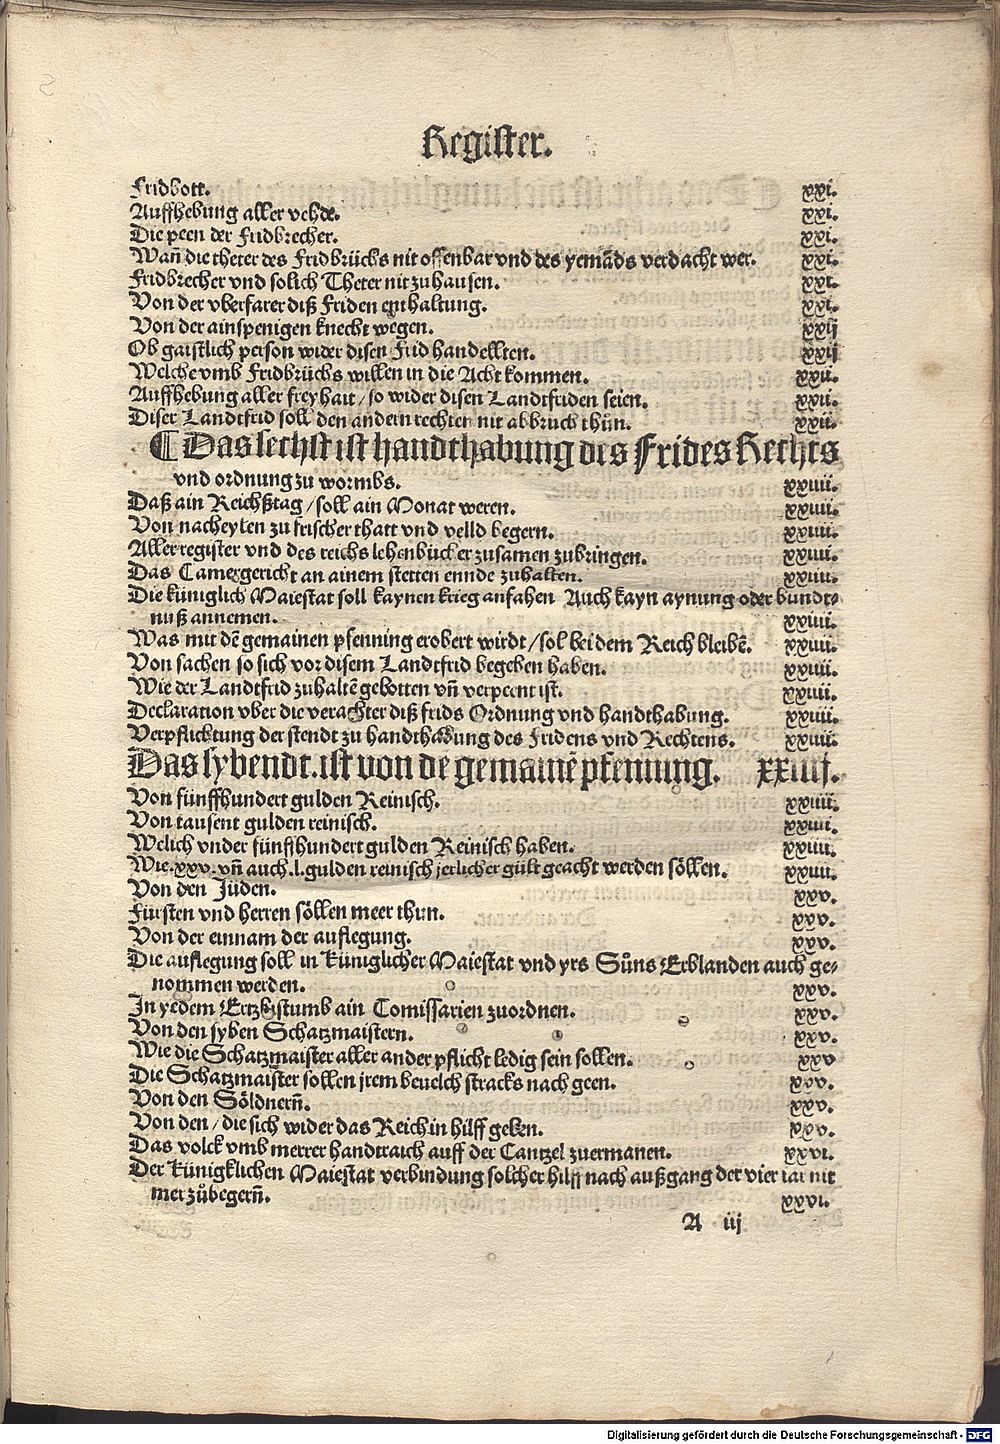 Register.
Fridbott. xxi.
Auffhebung aller vehde. xxi.
Die peen der Fridbrecher. xxi.
Wañ die theter des Fridbrüchs nit offenbar vnd des yemãds verdacht wer. xxi.
Fridbrecher vnd solich Theter nit zuhausen. xxi.
Von der vberfarer diß Friden enthaltung. xxi.
Von der ainspenigen knecht wegen. xxij
Ob gaistlich person wider disen Frid handellten. xxij
Welche vmb Fridbrüchs willen in die Acht kommen. xxii.
Auffhebung aller freyhait / so wider disen Landtfriden seien. xxii.
Diser Landtfrid soll den andern rechten nit abbruch thůn. xxii.
¶ Das sechst ist handthabung des Frides Rechts
vnd ordnung zu wormbs. xxiiii.
Daß ain Reichßtag / soll ain Monat weren. xxiiii.
Von nacheylen zů frischer thatt vnd velld begern. xxiiii.
Aller register vnd des reichs lehenbücher zusamen zubringen. xxiiii.
Das Camergericht an ainem stetten ennde zuhalten. xxiiii.
Die küniglich Maiestat soll kaynen krieg anfahen Auch kayn aynung oder bundt-
nuß annemen. xxiiii.
Was mit dẽ gemainen pfenning erobert wirdt / sol bei dem Reich bleibẽ. xxiiii.
Von sachen so sich vor disem Landtfrid begeben haben. xxiiii.
Wie der Landtfrid zuhaltẽ gebotten vñ verpeent ist. xxiiii.
Declaration vber die verachter diß frids Ordnung vnd handthabung. xxiiii.
Verpflichtung der stendt zu handthabung des Fridens vnd Rechtens. xxiiii.
Das sybendt. ist von de gemainẽ pfenning. xxiiij.
Von fünffhundert gulden Reinisch. xxiiii.
Von tausent gulden reinisch. xxiiii.
Welich vnder fünffhundert gulden Reinisch haben. xxiiii.
Wie .xxv. vñ auch .l. gulden reinisch jerlicher gült geacht werden söllen. xxiiii.
Von den Jüden. xxv.
Fürsten vnd herren söllen meer thun. xxv.
Von der einnam der auflegung. xxv.
Die auflegung soll in küniglicher Maiestat vnd yrs Sůns Erblanden auch ge-
nommen werden. xxv.
In yedem Ertzbistumb ain Comissarien zuordnen. xxv.
Von den syben Schatzmaistern. xxv.
Wie die Schatzmaister aller ander pflicht ledig sein sollen. xxv
Die Schatzmaister sollen jrem beuelch stracks nach geen. xxv.
Von den Söldnerñ. xxv.
Von den / die sich wider das Reich in hilff geben. xxv.
Das volck vmb merrer handtraich auff der Cantzel zuermanen. xxvi.
Der Künigklichen Maiestat verbindung solcher hilff nach außgang der vier iar nit
mer zůbegerñ. xxvi.
A iij
Digitalisierung gefördert durch die Deutsche Forschungsgemeinschaft - DFG